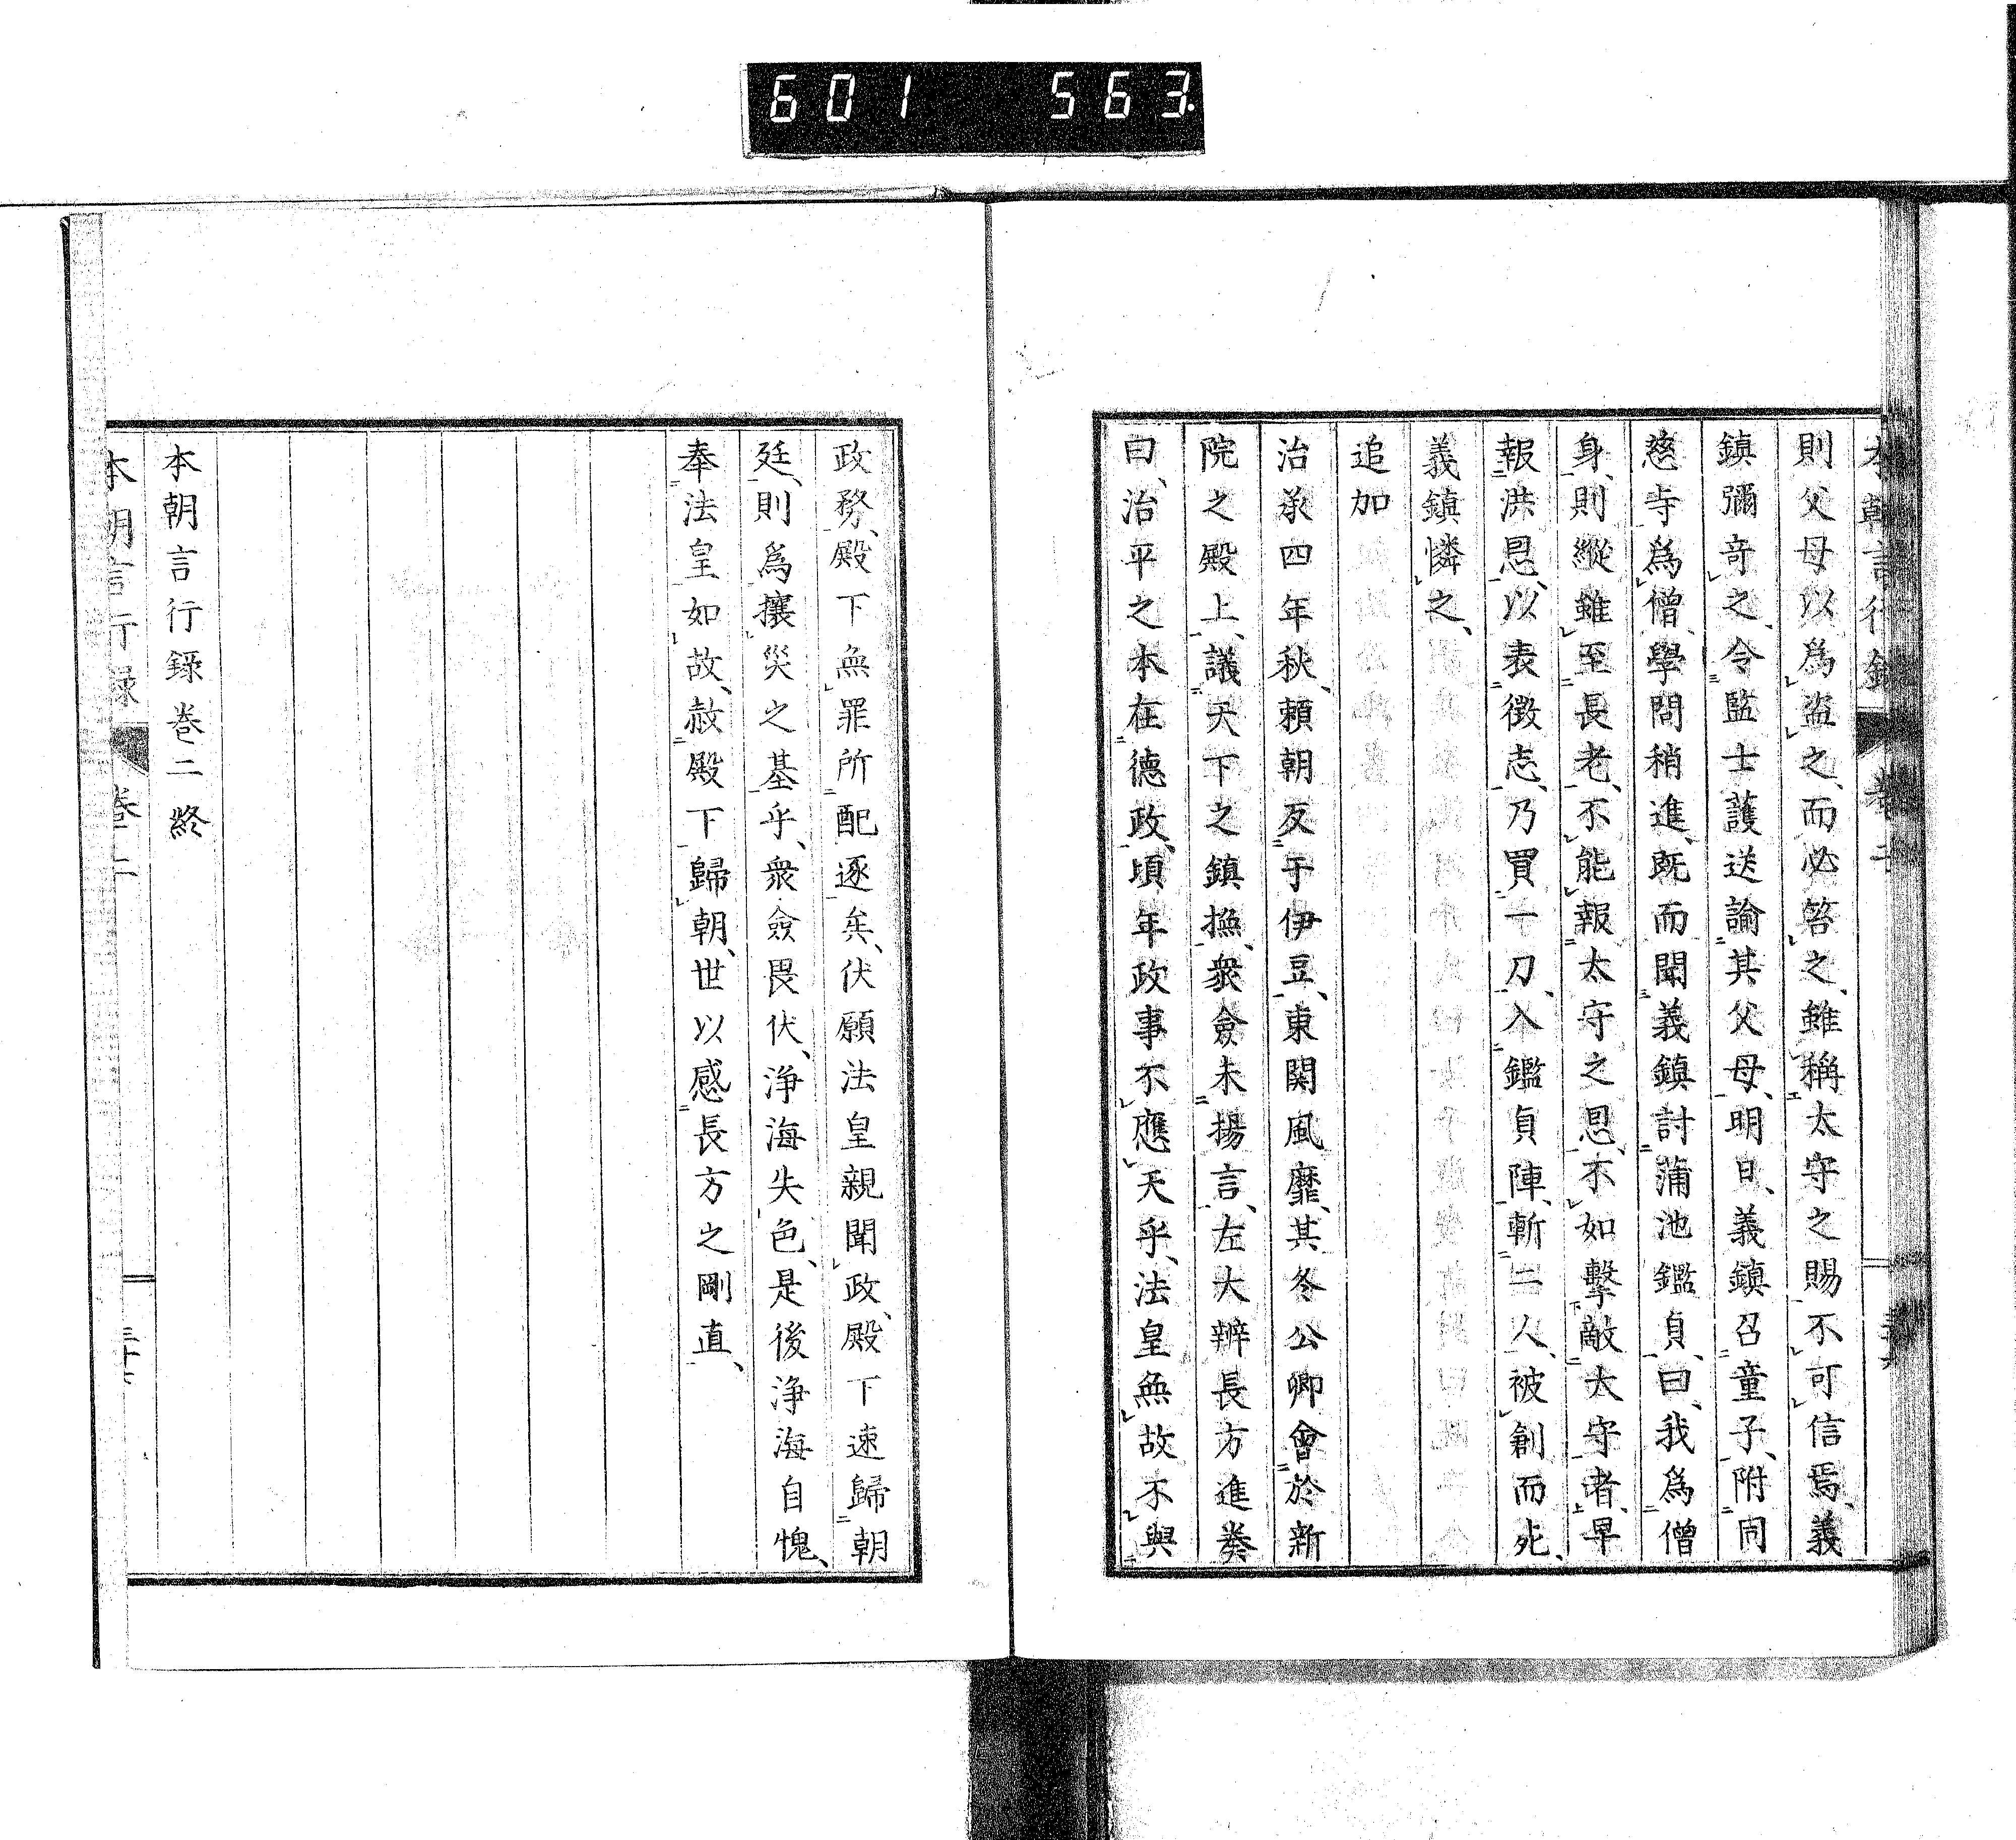 601 563
則父母以爲盜之、而必笞之、雖稱太守之賜不可信焉、義
鎮彌竒之、令監士護送諭其父母、明日、義鎮召童子、附同
慈寺爲僧、學問稍進、既而聞義鎮討蒲池鑑貞、曰、我爲僧
身、則縱雖至長老、不能報太守之恩、不如擊敵太守者、早
報洪恩、以表徴志、乃買一刀、入鑑貞陣、斬二人、被創而死、
義鎮憐之、
追加
治承四年秋、賴朝反于伊豆、東関風靡、其冬公卿會於新
院之殿上、議天下之鎮撫、衆僉未揚言、左大辨長方進發
曰、治平之本在德政、頃年政事不應天乎、法皇無故不與
政務、殿下無罪所配逐矣、伏願法皇親聞政、殿下速歸朝
廷、則爲攘災之基乎、衆僉畏伏、浄海失色、是後浄海自愧、
奉法皇如故、赦殿下歸朝、世以感長方之剛直、
本朝言行錄巻二終
本朝言行録 巻二